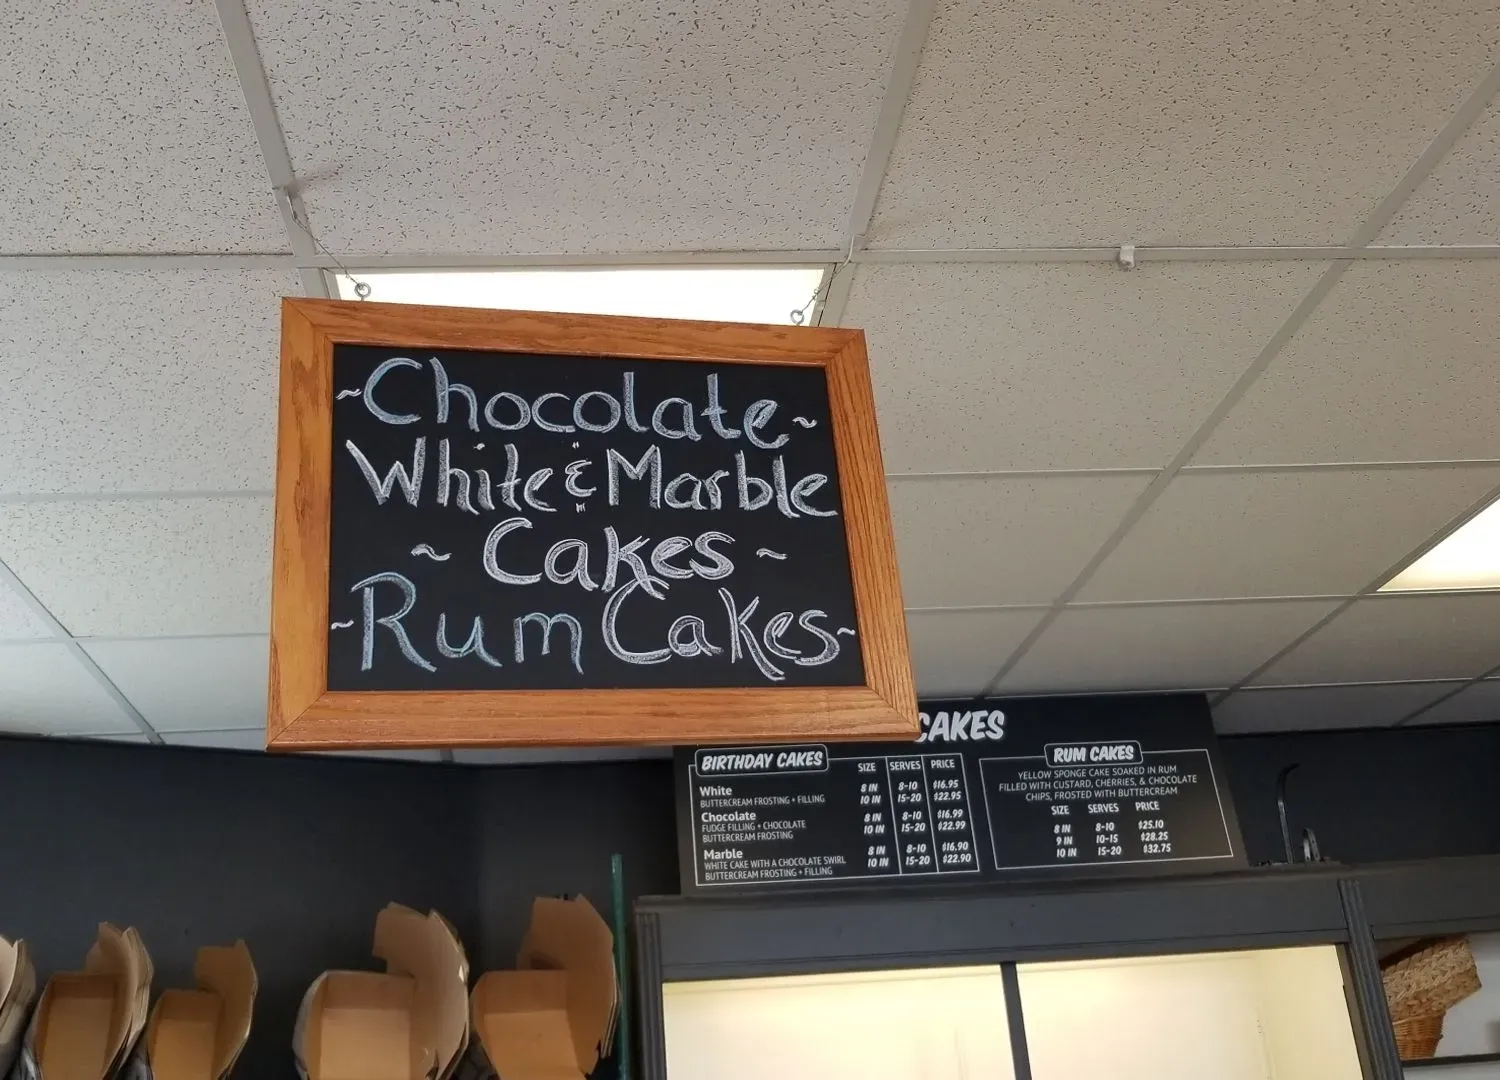 ~Chocolate~
White & Marble
~ Cakes ~
~Rum Cakes~
CAKES
BIRTHDAY CAKES SIZE SERVES PRICE
White
BUTTERCREAM FROSTING + FILLING
8 IN 8-10 $16.95
10 IN 15-20 $22.95
Chocolate
FUDGE FILLING + CHOCOLATE
BUTTERCREAM FROSTING
8 IN 8-10 $16.99
10 IN 15-20 $22.99
Marble
WHITE CAKE WITH A CHOCOLATE SWIRL
BUTTERCREAM FROSTING + FILLING
8 IN 8-10 $16.90
10 IN 15-20 $22.90
RUM CAKES
YELLOW SPONGE CAKE SOAKED IN RUM
FILLED WITH CUSTARD, CHERRIES, & CHOCOLATE
CHIPS, FROSTED WITH BUTTERCREAM
SIZE SERVES PRICE
8 IN 8-10 $25.10
9 IN 10-15 $28.25
10 IN 15-20 $32.75